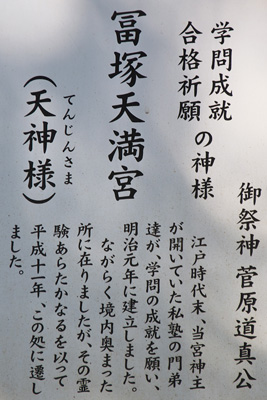 御祭神 菅原道真公
学問成就
合格祈願
の神様
冨塚天満宮
（天神様）
てんじんさま
江戸時代末、当宮神主
が開いていた私塾の門弟
達が、学問の成就を願い、
明治元年に建立しました。
ながらく境内奥まった
所に在りましたが、その霊
験あらたかなるを以って
平成十一年、この処に遷し
ました。